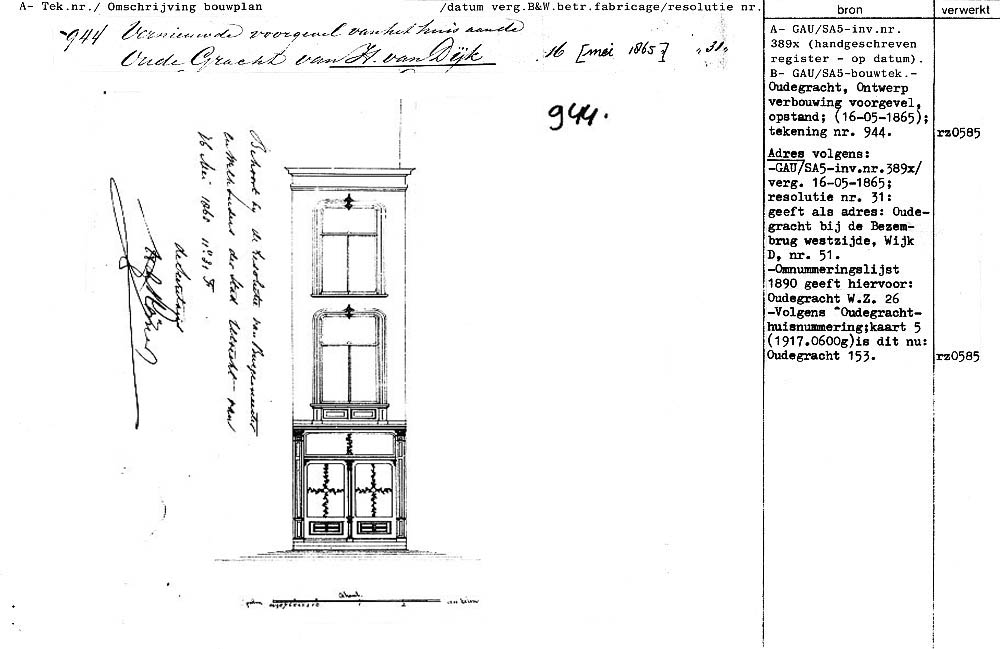 A- Tek.nr./ Omschrijving bouwplan /datum verg.B&W.betr.fabricage/resolutie nr.
bron
verwerkt
944 Vernieuwde voorgevel van het huis aan de
Oude Gracht van H. van Dijk 16 [mei 1865] "31"
944.
Behoort bij de resolutie van Burgemeester
en Wethouders der stad Utrecht van
16 Mei 1865 nº 31 F
de Secretaris
Schaal
A- GAU/SA5-inv.nr.
389x (handgeschreven
register - op datum).
B- GAU/SA5-bouwtek.-
Oudegracht, Ontwerp
verbouwing voorgevel,
opstand; (16-05-1865);
tekening nr. 944.
rz0585
Adres volgens:
-GAU/SA5-inv.nr.389x/
verg. 16-05-1865;
resolutie nr. 31:
geeft als adres: Oude-
gracht bij de Bezem-
brug westzijde, Wijk
D, nr. 51.
-Omnummeringslijst
1890 geeft hiervoor:
Oudegracht W.Z. 26
-Volgens "Oudegracht-
huisnummering;kaart 5
(1917.0600g)is dit nu:
Oudegracht 153.
rz0585